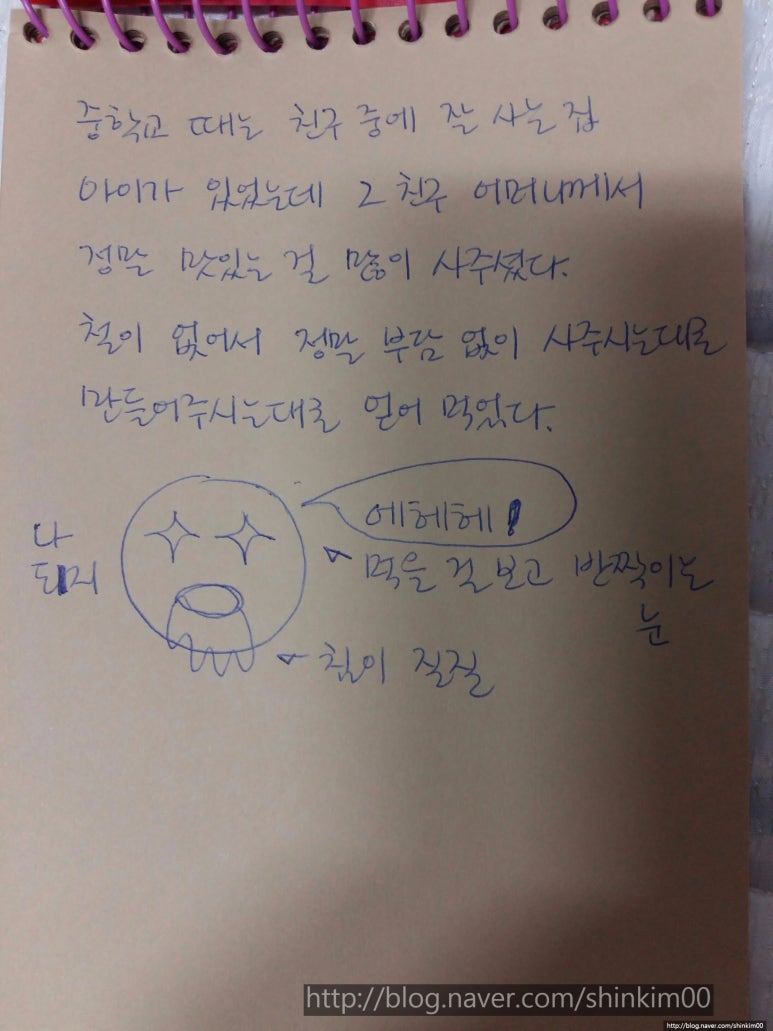 중학교 때는 친구 중에 잘 사는 집
아이가 있었는데 그 친구 어머니께서
정말 맛있는 걸 많이 사주셨다.
철이 없어서 정말 부담 없이 사주시는대로
만들어주시는대로 얻어 먹었다.
에헤헤!
나
돼지
먹을 걸 보고 반짝이는
눈
침이 질질
http://blog.naver.com/shinkim00
http://blog.naver.com/shinkim00